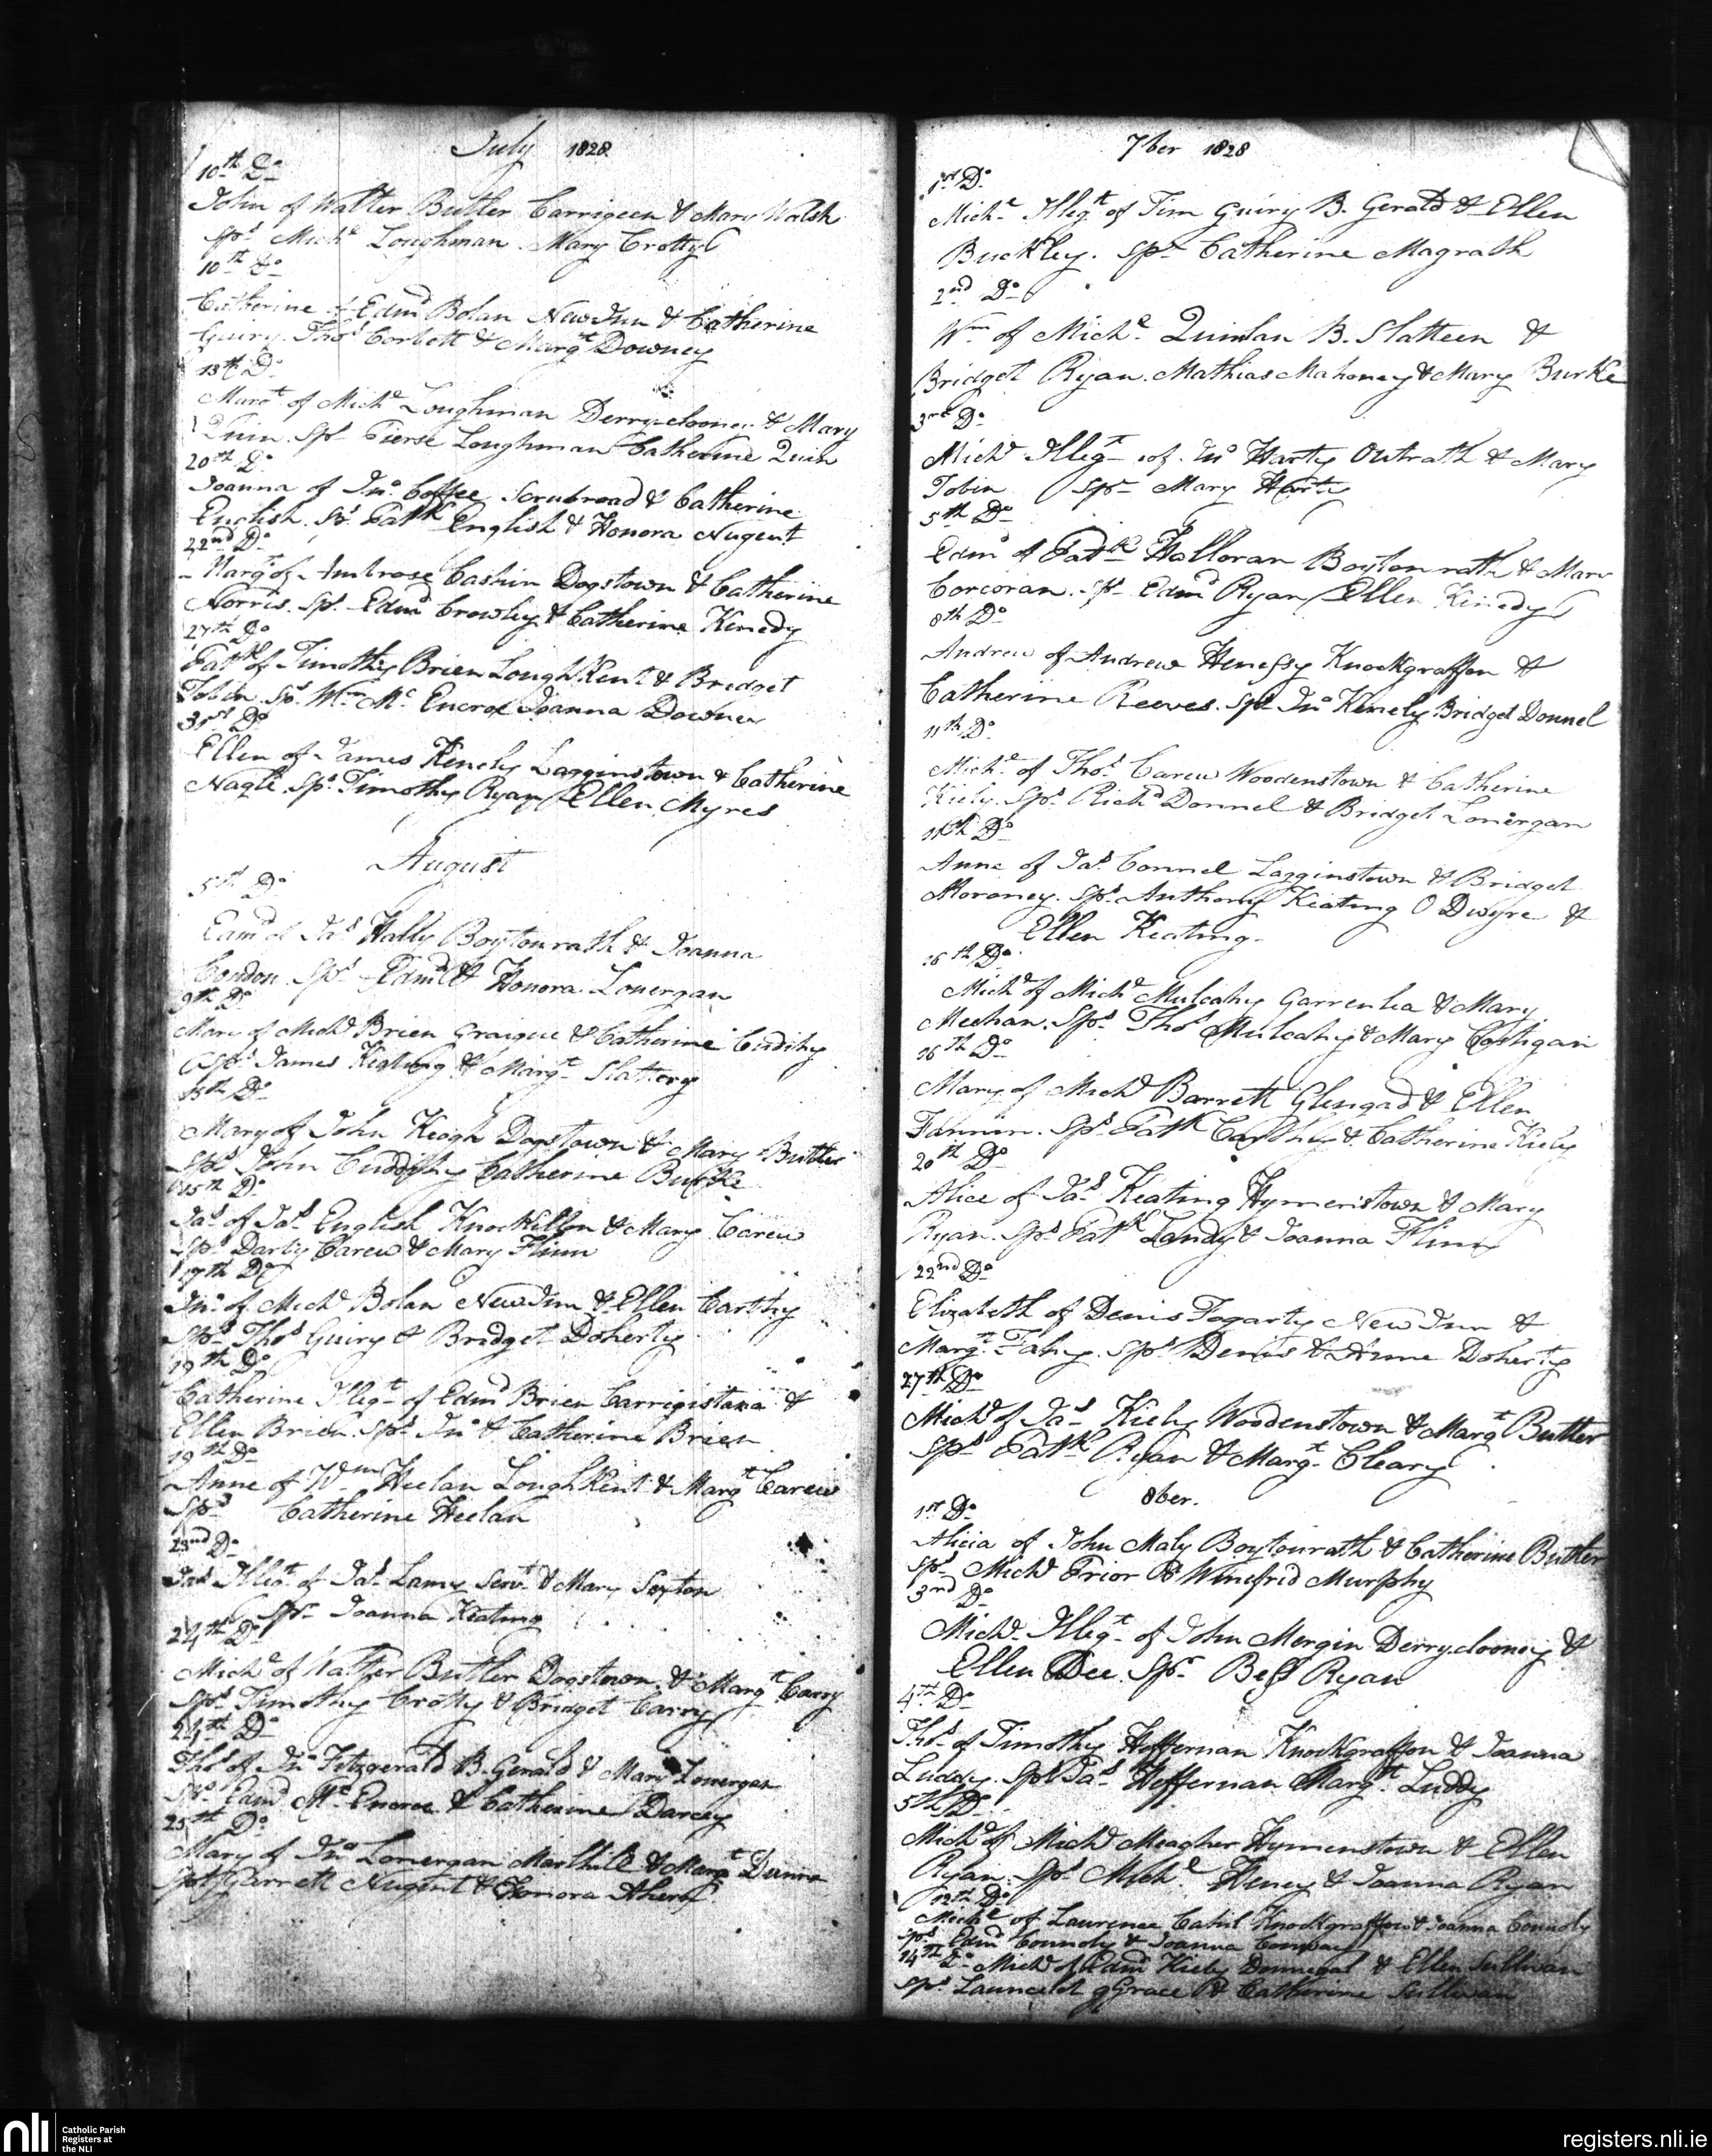 July 1828
10th Do
John of Walter Butler Carrigeen & Mary Walsh
Sps Michl Loughman. Mary Crotty
10th Do
Catherine of Edmd Bolan New Inn & Catherine
Guiry. Thos Corbett & Margt Downey
13th Do
Margt of Michl Loughman Derryclooney & Mary
Quin. Sps Pierse Loughman Catherine Quin
20th Do
Joanna of Jno Coffee Scrubroad & Catherine
English. Sps Patk English & Honora Nugent
22nd Do
Margt of Ambrose Cashin Dogstown & Catherine
Norris. Sps Edmd Crowley & Catherine Kenedy
27th Do
Patk of Timothy Brien LoughKent & Bridget
Tobin. Sps Wm Mc Encroe Joanna Downey
31st Do
Ellen of James Kenely Lagginstown & Catherine
Nagle. Sps Timothy Ryan Ellen Myres
August
5th Do
Edmd of Jas Hally Boytonrath & Joanna
Condon. Sps Edmd & Honora Lonergan
9th Do
Mary of Michl Brien Graigue & Catherine Cudihy
Sps James Keating & Margt Slattery
Do
Mary of John Keogh Dogstown & Mary Butler
Sps John Cuddihy Catherine Burke
15th Do
Jas of Jas English Knockillon & Mary Carew
Sps Darby Carew & Mary Flinn
17th Do
Jno of Michl Bolan New Inn & Ellen Carthy
Sps Thos Guiry & Bridget Doherty
19th Do
Catherine Illegt of Edmd Brien Carrigistana &
Ellen Brien. Sps Jno & Catherine Brien
19th Do
Anne of Wm Heelan LoughKent & Margt Carew
Sps Catherine Heelan
23nd Do
Jas Illegt of Jas Lamy Servt & Mary Sexton
Spr Joanna Keating
24th Do
Michl of Walter Butler Dogstown & Margt Carry
Sps Timothy Crotty & Bridget Carry
24th Do
Thos of Jno Fitzgerald B. Gerald & Mary Lonergan
Sps Edmd Mc Encroe & Catherine Darcey
25th Do
Mary of Jno Lonergan Marlhill & Margt Dunne
Sps Garrett Nugent & Honora Ahern
7ber 1828
1st Do
Michl Illegt of Tim Guiry B. Gerald & Ellen
Buckley. Spr Catherine Magrath
2nd Do
Wm of Michl Quinlan B. Slatteen &
Bridget Ryan. Mathias Mahoney & Mary Burke
3rd Do
Michl Illegt of Jno Harty Outrath & Mary
Tobin Spr Mary Harty
5th Do
Edmd of Patk Halloran Boyton rath & Mary
Corcoran. Sps Edmd Ryan Ellen Kenedy
8th Do
Andrew of Andrew Henessy Knockgraffon &
Catherine Reeves. Sps Jno Kenely Bridget Donnel
11th Do
Michl of Thos Carew Woodenstown & Catherine
Kiely. Sps Richd Donnel & Bridget Lonergan
11th Do
Anne of Jas Connel Lagginstown & Bridget
Moroney. Sps Anthony Keating O Dwyre &
Ellen Keating.
16th Do
Michl of Michl Mulcahy Garrenlea & Mary
Meehan. Sps Thos Mulcahy & Mary Costigan
16th Do
Mary of Michl Barrett Glengad & Ellen
Fannin. Sps Patk Carthy & Catherine Kiely
20th Do
Alice of Jas Keating Hymenstown & Mary
Ryan. Sps Patk Landy & Joanna Flinn
22nd Do
Elizabeth of Denis Fogarty New Inn &
Margt Fahy. Sps Denis & Anne Doherty
27th Do
Michl of Jas Kiely Woodenstown & Margt Butler
Sps Patk Ryan & Margt Cleary
8ber.
1st Do
Alicia of John Maly Boytonrath & Catherine Butler
Sps Michl Prior & Winefrid Murphy
3nd Do
Michl Illegt of John Mergin Derryclooney &
Ellen Dee. Spr Bess Ryan
4th Do
Thos of Timothy Heffernan Knockgraffon & Joanna
Luddy. Sps Jas Heffernan Margt Luddy
5th Do
Michl of Michl Meagher Hymenstown & Ellen
Ryan. Sps Michl Heney & Joanna Ryan
12th Do
Michl of Laurence Cahil Knockgraffon & Joanna Connoly
Sps Edmd Connoly & Joanna Conway
14th Do Michl of Edmd Kiely Donnegal & Ellen Sullivan
Sps Launcelot Grace & Catherine Sullivan
nli Catholic Parish
Registers at
the NLI
registers.nli.ie